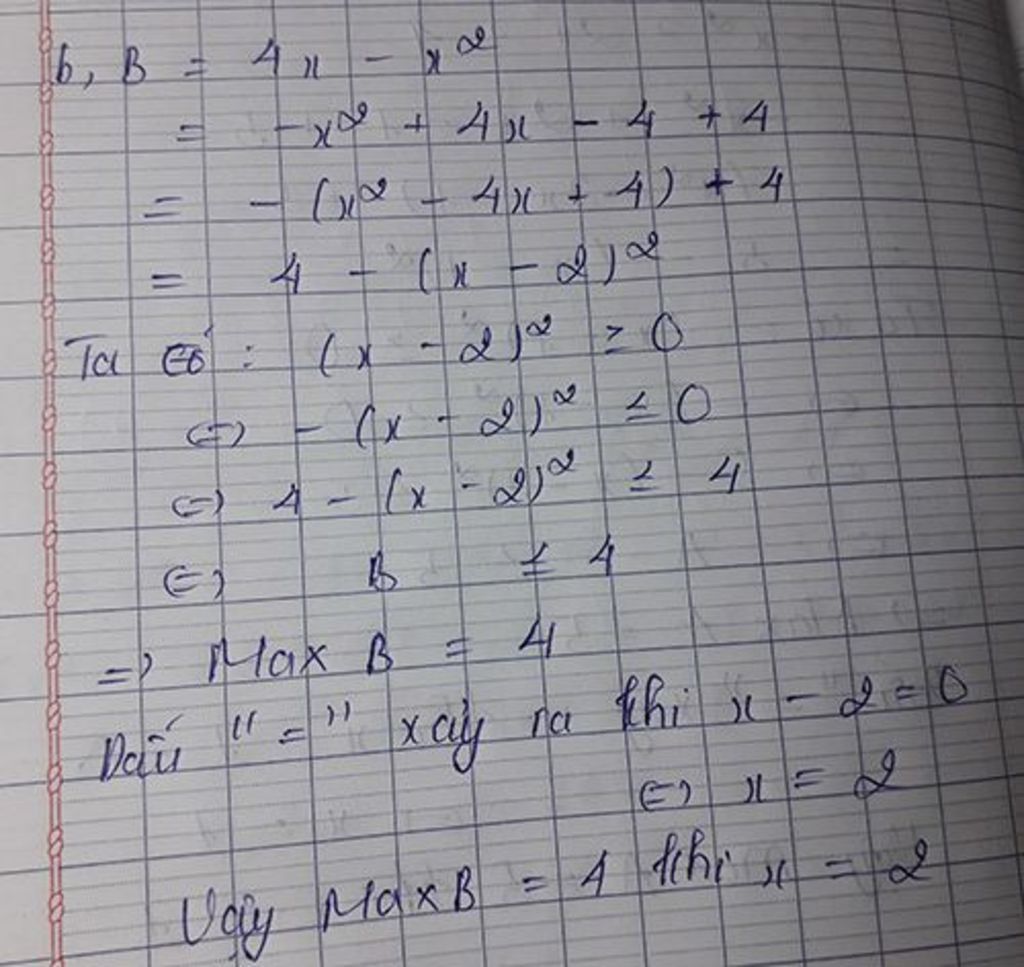 b, B = 4x - x²
= -x² + 4x - 4 + 4
= - (x² - 4x + 4) + 4
= 4 - (x - 2)²
Ta có : (x - 2)² ≥ 0
⇔ - (x - 2)² ≤ 0
⇔ 4 - (x - 2)² ≤ 4
⇔ B ≤ 4
=> Max B = 4
Dấu "=" xảy ra khi x - 2 = 0
⇔ x = 2
Vậy Max B = 4 khi x = 2